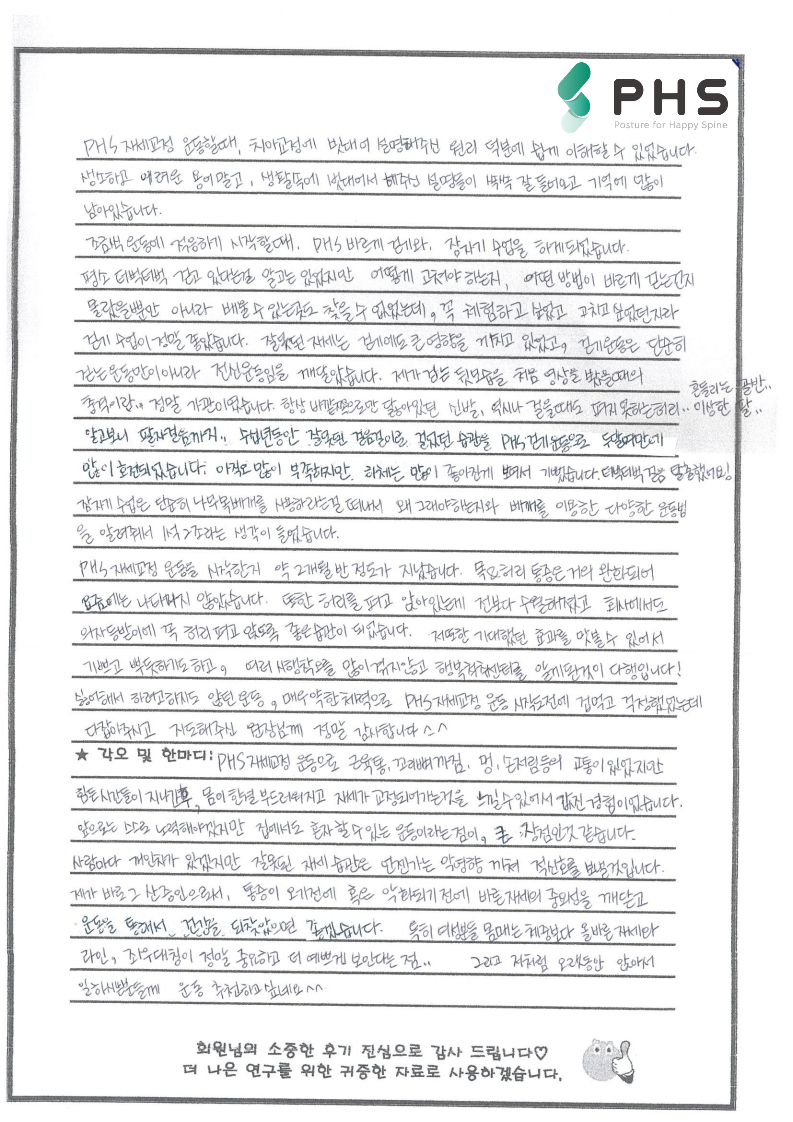 PHS
Posture for Happy Spine
PHS 자세교정 운동할때, 치아교정에 빗대어 설명해주신 원리 덕분에 쉽게 이해할 수 있었습니다.
생소하고 어려운 용어말고, 생활속에 빗대어서 해주신 설명들이 쏙쏙 잘 들어오고 기억에 많이
남아있습니다.
조금씩 운동에 적응하기 시작할때, PHS 바르게 걷기와, 잠자기 수업을 하게되었습니다.
평소 터벅터벅 걷고 있다는걸 알고는 있었지만 어떻게 고쳐야 하는지, 어떤 방법이 바르게 걷는건지
몰랐을뿐만 아니라 배울 수 있는곳도 찾을 수 없었는데, 꼭 체험하고 싶었고 고치고 싶었던지라
걷기 수업이 정말 좋았습니다. 잘못된 자세는 걷기에도 큰 영향을 끼치고 있었고, 걷기운동은 단순히
걷는 운동만이 아니라 전신운동임을 깨달았습니다. 제가 걷는 뒷모습을 처음 영상을 봤을때의
충격이란.. 정말 가관이었습니다. 항상 바깥쪽으로만 닳아있던 신발, 역시나 걸을때도 펴지 못하는 허리.. 이상한 팔..
흔들리는 골반..
알고보니 팔자걸음까지.. 수십년동안 잘못된 걸음걸이로 걸었던 습관을 PHS 걷기운동으로 두달여만에
많이 호전되었습니다. 아직도 많이 부족하지만, 하체는 많이 좋아진게 보여서 기뻤습니다. 터벅터벅 걸음 탈출했어요!
잠자기 수업은 단순히 나무목베개를 사용하라는걸 떠나서 왜 그래야하는지와 베개를 이용한 다양한 운동법
을 알려줘서 1석 2조라는 생각이 들었습니다.
PHS 자세교정 운동을 시작한지 약 2개월 반 정도가 지났습니다. 목요허리 통증은 거의 완화되어
요즘에는 나타나지 않았습니다. 또한 허리를 펴고 앉아있는게 전보다 수월해졌고 회사에서도
의자등받이에 꼭 허리 펴고 앉도록 좋은습관이 되었습니다. 저또한 기대했던 효과를 맛볼 수 있어서
기쁘고 뿌듯하기도 하고, 여러 시행착오를 많이 겪지않고 행복척추센터를 알게된것이 다행입니다!
싫어해서 하려고하지도 않던 운동, 매우약한체력으로 PHS 자세교정 운동 시작도전에 겁먹고 걱정했었는데
다잡아주시고 지도해주신 원장님께 정말 감사합니다 ^^
★ 각오 및 한마디: PHS 자세교정 운동으로 근육통, 꼬리뼈까짐, 멍, 손저림등의 고통이 있었지만
힘든시간들이 지나간後, 몸이 한결 부드러워지고 자세가 교정되어가는것을 느낄수있어서 값진 경험이었습니다.
앞으로는 스스로 노력해야겠지만 집에서도 혼자 할 수 있는 운동이라는 점이, 큰 장점인것 같습니다.
사람마다 개인차가 있겠지만 잘못된 자세 습관은 언젠가는 악영향 끼쳐 적신호를 보낼것입니다.
제가 바로 그 산증인으로서, 통증이 오기전에 혹은 악화되기 전에 바른자세의 중요성을 깨닫고
운동을 통해서 건강을 되찾았으면 좋겠습니다. 특히 여성분들 몸매는 체중보다 올바른 자세와
라인, 좌우대칭이 정말 중요하고 더 예쁘게 보인다는 점.. 그리고 저처럼 오래동안 앉아서
일하시는분들께 운동 추천하고 싶네요 ^^
회원님의 소중한 후기 진심으로 감사 드립니다♡
더 나은 연구를 위한 귀중한 자료로 사용하겠습니다.